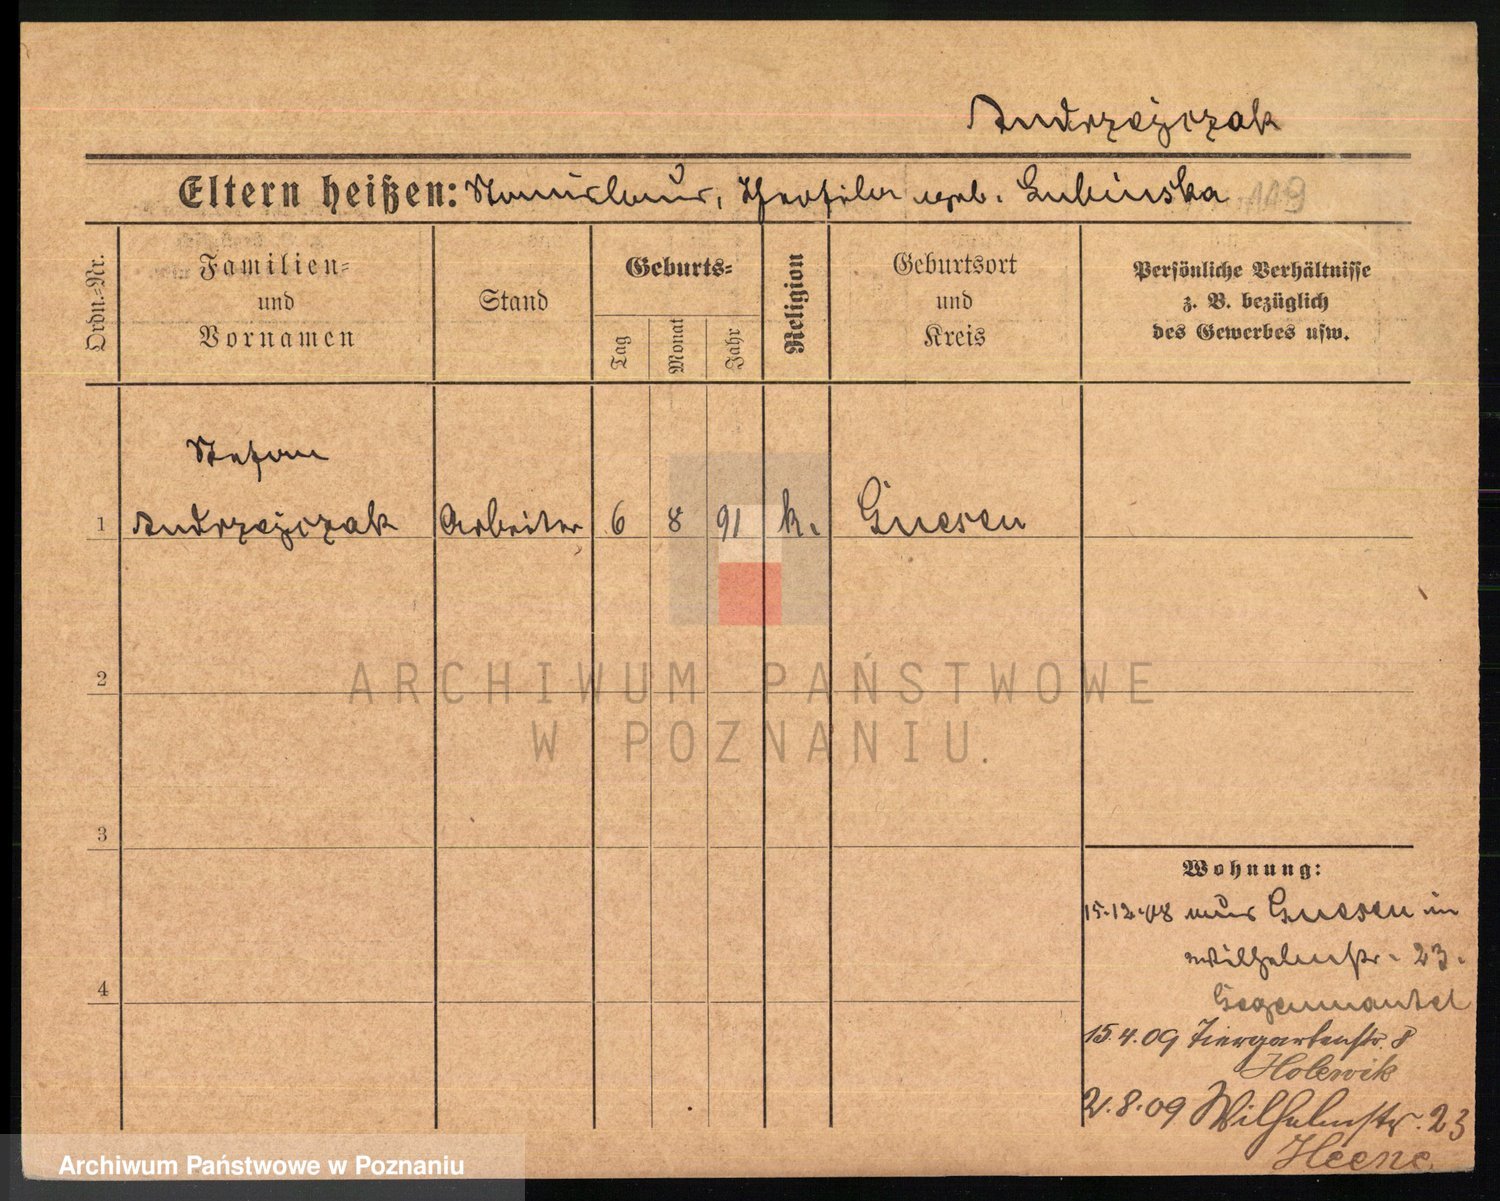 Andrzejczak
Eltern heißen: Stanislaus, Theofila geb. Lubinska 119
Ordn.=Nr.
Familien=
und
Vornamen
Stand
Geburts=
Tag
Monat
Jahr
Religion
Geburtsort
und
Kreis
Persönliche Verhältnisse
z. B. bezüglich
des Gewerbes usw.
Stefan
1 Andrzejczak Arbeiter 6 8 91 k. Gnesen
2
ARCHIWUM PAŃSTWOWE
W POZNANIU.
3
4
Wohnung:
15.12.08 aus Gnesen in
Wilhelmstr. 23.
15.4.09 Tiergartenstr. 8
2.8.09 Wilhelmstr. 23
Archiwum Państwowe w Poznaniu